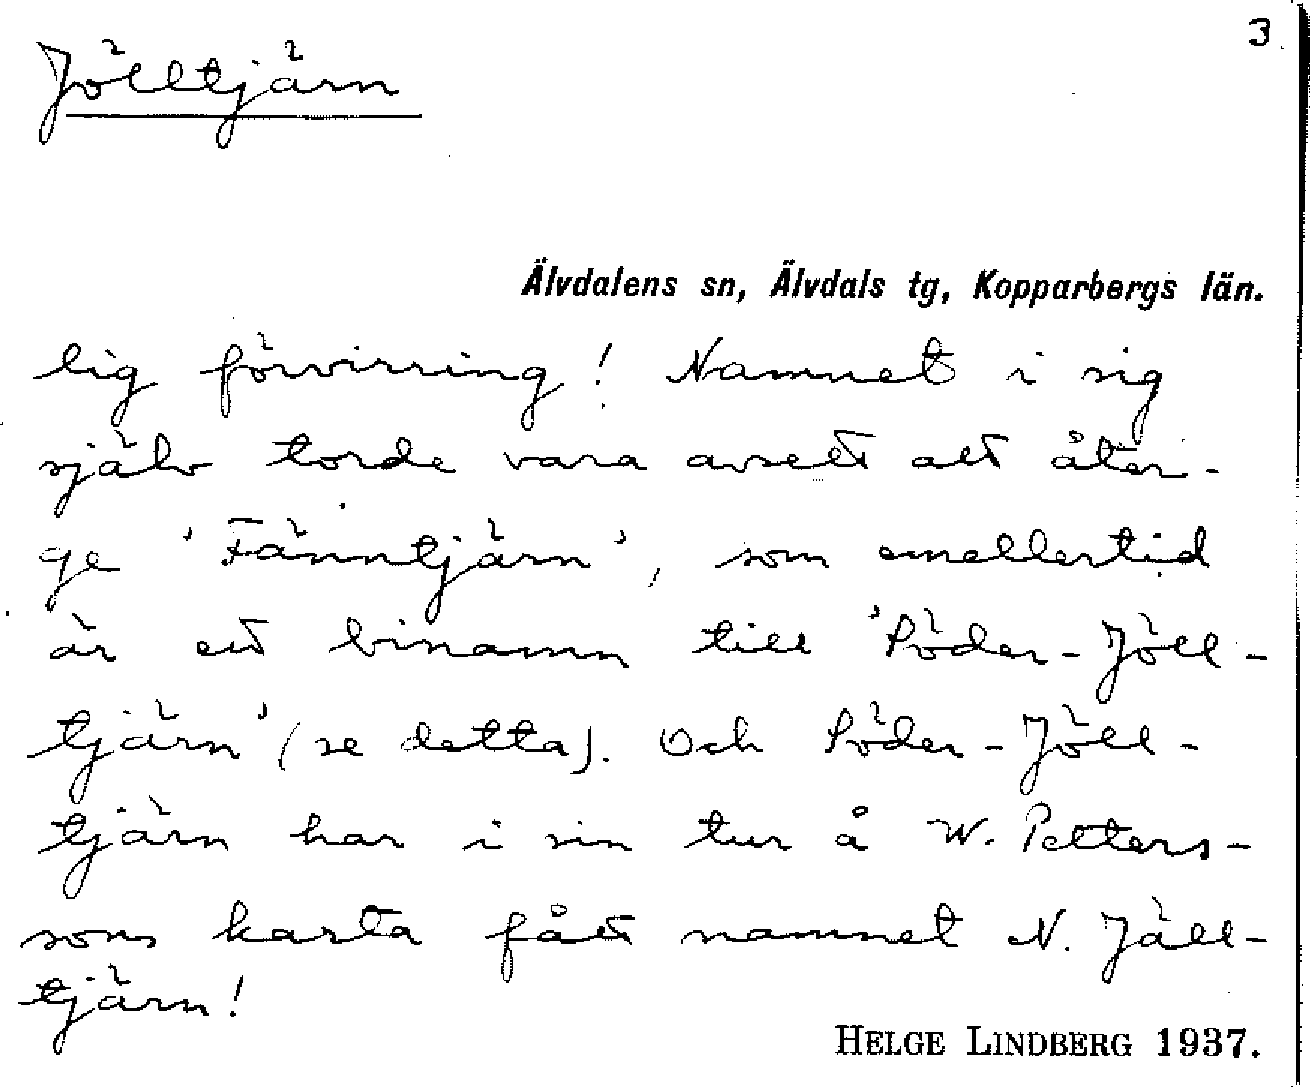 3
Jölltjärn
Älvdalens sn, Älvdals tg, Kopparbergs län.
lig förvirring! Namnet i sig
själv torde vara avsett att åter-
ge 'Fänntjärn', som emellertid
är ett binamn till 'Söder-Jöll-
tjärn' (se detta). Och Söder-Jöll-
tjärn har i sin tur å W. Petters-
sons karta fått namnet N. Jäll-
tjärn!
HELGE LINDBERG 1937.